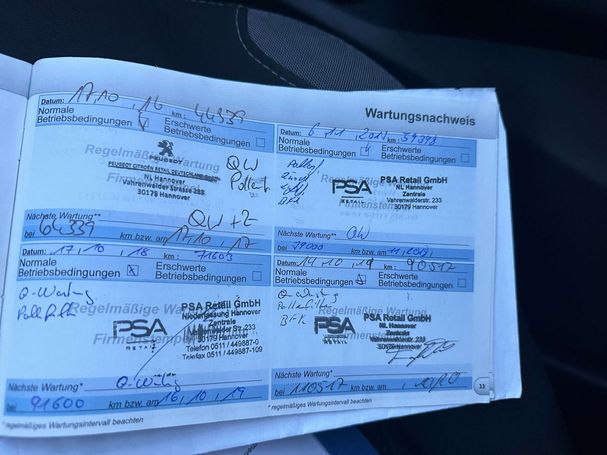 Wartungsnachweis
Datum: 17,10,16 km: 44339
Normale Betriebsbedingungen
Erschwerte Betriebsbedingungen
Regelmäßige Wartung
PEUGEOT
PEUGEOT CITROËN RETAIL DEUTSCHLAND
NL Hannover
Vahrenwalder Strasse 233
30179 Hannover
QW
Nächste Wartung**
QW+Z
bei 64339 km bzw. am 17,10,17
Datum: 6 11 km:
Normale Betriebsbedingungen
Erschwerte Betriebsbedingungen
Regelmäßige
PSA RETAIL
PSA Retail GmbH
NL Hannover
Zentrale
Vahrenwalderstr. 233
30179 Hannover
Firmenstempel
Nächste Wartung**
QW
bei 79000 km bzw. am 11
Datum: 17,10,18 km: 71603
Normale Betriebsbedingungen x
Erschwerte Betriebsbedingungen
Q-Wartung
Regelmäßige
PSA RETAIL
PSA Retail GmbH
Niederlassung Hannover
Zentrale
str. 233
30179 Hannover
Telefon 0511 / 449887-0
Telefax 0511 / 449887-109
Firmenstempel
Nächste Wartung*
Q-Wartung
bei 91600 km bzw. am 16,10,19
Datum: 14,10,19 km: 90517
Normale Betriebsbedingungen
Erschwerte Betriebsbedingungen
Q-Wartung
Regelmäßige Wartung
PSA RETAIL
PSA Retail GmbH
NL Hannover
Zentrale
Vahrenwalderstr. 233
30179 Hannover
Firmenstempel
Nächste Wartung*
bei 110517 km bzw. am
33
* regelmäßiges Wartungsintervall beachten